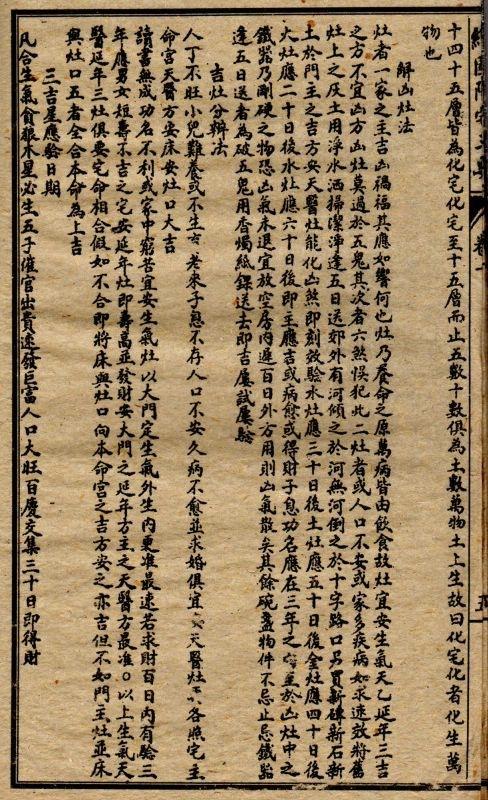 十四十五層皆為化宅化宅至十五層而止五數十數俱為土數萬物土上生故曰化宅化者化生萬
物也
解凶灶法
灶者一家之主吉凶禍福其應如響何也灶乃養命之原萬病皆由飲食故灶宜安生氣天乙延年三吉
之方不宜凶方凶灶莫過於五鬼其次者六煞悮犯此二灶者或人口不安或家多疾病如求速效將舊
灶上之灰土用淨水洒掃潔淨逢五日送郊外有河傾之於河無河倒之於十字路口另買新磚新石新
土於門主之吉方安天醫灶能化凶煞即刻效驗水灶應三十日後土灶應五十日後金灶應四十日後
火灶應二十日後水灶應六十日後即主應吉或病愈或得財子息功名應在三年之 至於凶灶中之
鐵器乃剛硬之物恐凶氣未退宜放空房內遲百日外方用則凶氣散矣其餘碗盞物件不忌止忌鐵器
逢五日送者為破五鬼用香燭紙錁送去即吉屢試屢騐
吉灶分辨法
人丁不旺小兒難養或不生 老來子息不存人口不安久病不愈並求婚俱宜 天醫灶 各照宅主
命宮天醫方安床安灶口大吉
讀書無成功名不利或家中窮苦宜安生氣灶以大門定生氣外生內更准最速若求財百日內有驗三
年應男女短壽不吉之宅安延年灶即壽高並發財安大門之延年方主之天醫方最准○以上生氣天
醫延年三灶俱要宅命相合假如不合即將床與灶口向本命宮之吉方安之亦吉但不如門主灶並床
與灶口五者全合本命為上吉
三吉星應驗日期
凡合生氣貪狼木星必生五子催官出貴速發巨富人口大旺百慶交集三十日即得財